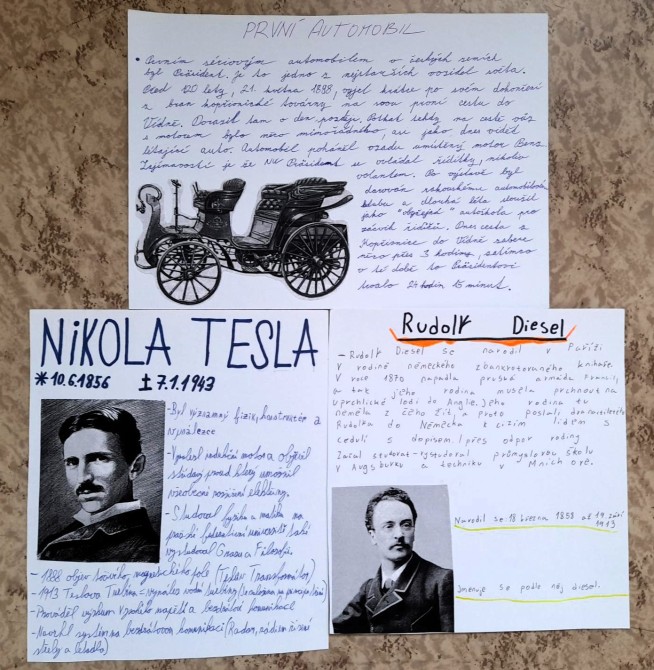 PRVNÍ AUTOMOBIL
• Prvním sériovým automobilem v českých zemích
byl Präsident. je to jedno z nejstarších vozidel světa.
Před 120 lety, 21. května 1898, vyjel krátce po svém dokončení
z bran kopřivnické továrny na svou první cestu do
Vídně. Dorazil tam o den později. Potkat tehdy na cestě vůz
s motorem bylo něco mimořádného, asi jako dnes vidět
létající auto. Automobil poháněl vzadu umístěný motor Benz
Zajímavostí je že NW Präsident se ovládal řídítky, nikoliv
volantem. Po výstavě byl
darován rakouskému automobilovému
klubu a dlouhá léta sloužil
jako "obyčejná" autoškola pro
zácvik řidičů. Dnes cesta z
Kopřivnice do Vídně zabere
něco přes 3 hodiny, zatímco
v té době to Präsidentovi
trvalo 24 hodin 15 minut.
NiKOLA TESLA
*10.6.1856 ‡ 7.1.1943
-Byl významný fyzik, konstruktér a
vynálezce
-Vynalezl indukční motor a objevil
střídavý proud který umožnil
všeobecné rozšíření elektřiny.
-Studoval fyziku a matiku na
pražské univerzitě také
vystudoval Filosofii.
- 1888 objev točivého magnetického pole (Teslův Transformátor)
- 1913 Teslova Turbína = vynález vodní turbíny
- Prováděl výzkum vysokého napětí a bezdrátové komunikace
- Navrhl systém na bezdrátovou komunikaci (Radar, rádiem řízené
střely a letadla)
Rudolf Diesel
- Rudolf Diesel se narodil v Paříži
v rodině německého zbankrotovaného knihaře.
V roce 1870 napadla pruská armáda Francii,
a tak jeho rodina musela prchnout na
uprchlické lodi do Anglie. Jeho rodina tu
neměla z čeho žít, a proto poslali dvanáctiletého
Rudolfa do Německa k cizím lidem s
cedulí s dopisem. I přes odpor rodiny
začal studovat - vystudoval průmyslovou školu
v Augsburku a techniku v Mnichově.
Narodil se 18 března 1858 až 19. září
1913
Jmenuje se podle něj diesel.